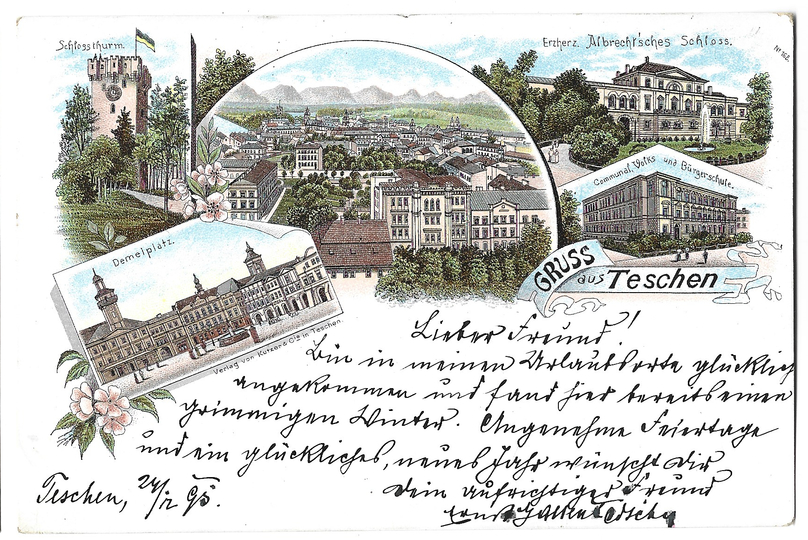 Schlossthurm.
Erzherz. Albrecht'sches Schloss.
Nº 162.
Communal, Volks und Bürgerschule.
Demelplatz.
GRUSS
aus Teschen
Verlag von Kutzer & Cie in Teschen.
Lieber Freund!
Bin in meinen Urlaubsorte glücklich
angekommen und fand hier bereits einen
grimmigen Winter. Angenehme Feiertage
und ein glückliches, neues Jahr wünscht Dir
Dein aufrichtiger Freund
Teschen, 24/12 95.
Ernst